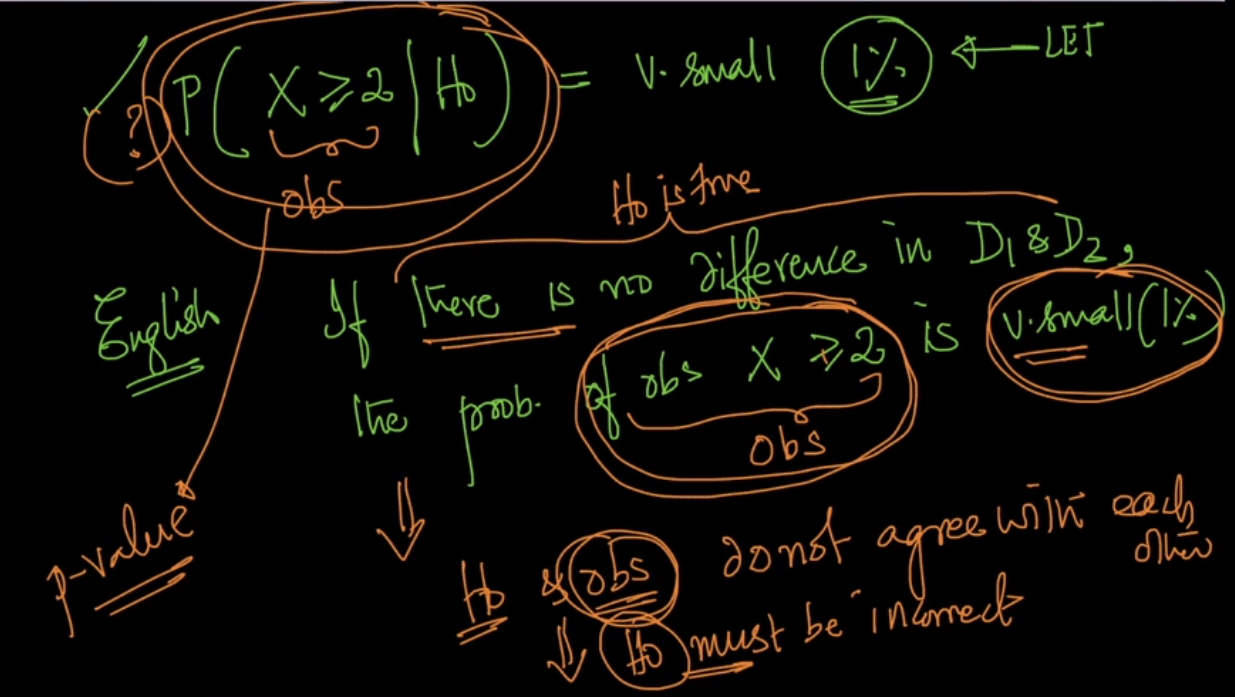 ? P( X ≥ 2 | Ho ) = v. small 1% ← LET
obs
Ho is true
English If there is no difference in D1 & D2,
the prob. of obs X ≥ 2 is v. small (1%)
obs
p-value
⇓
Ho & obs do not agree with each other
⇓ Ho must be incorrect